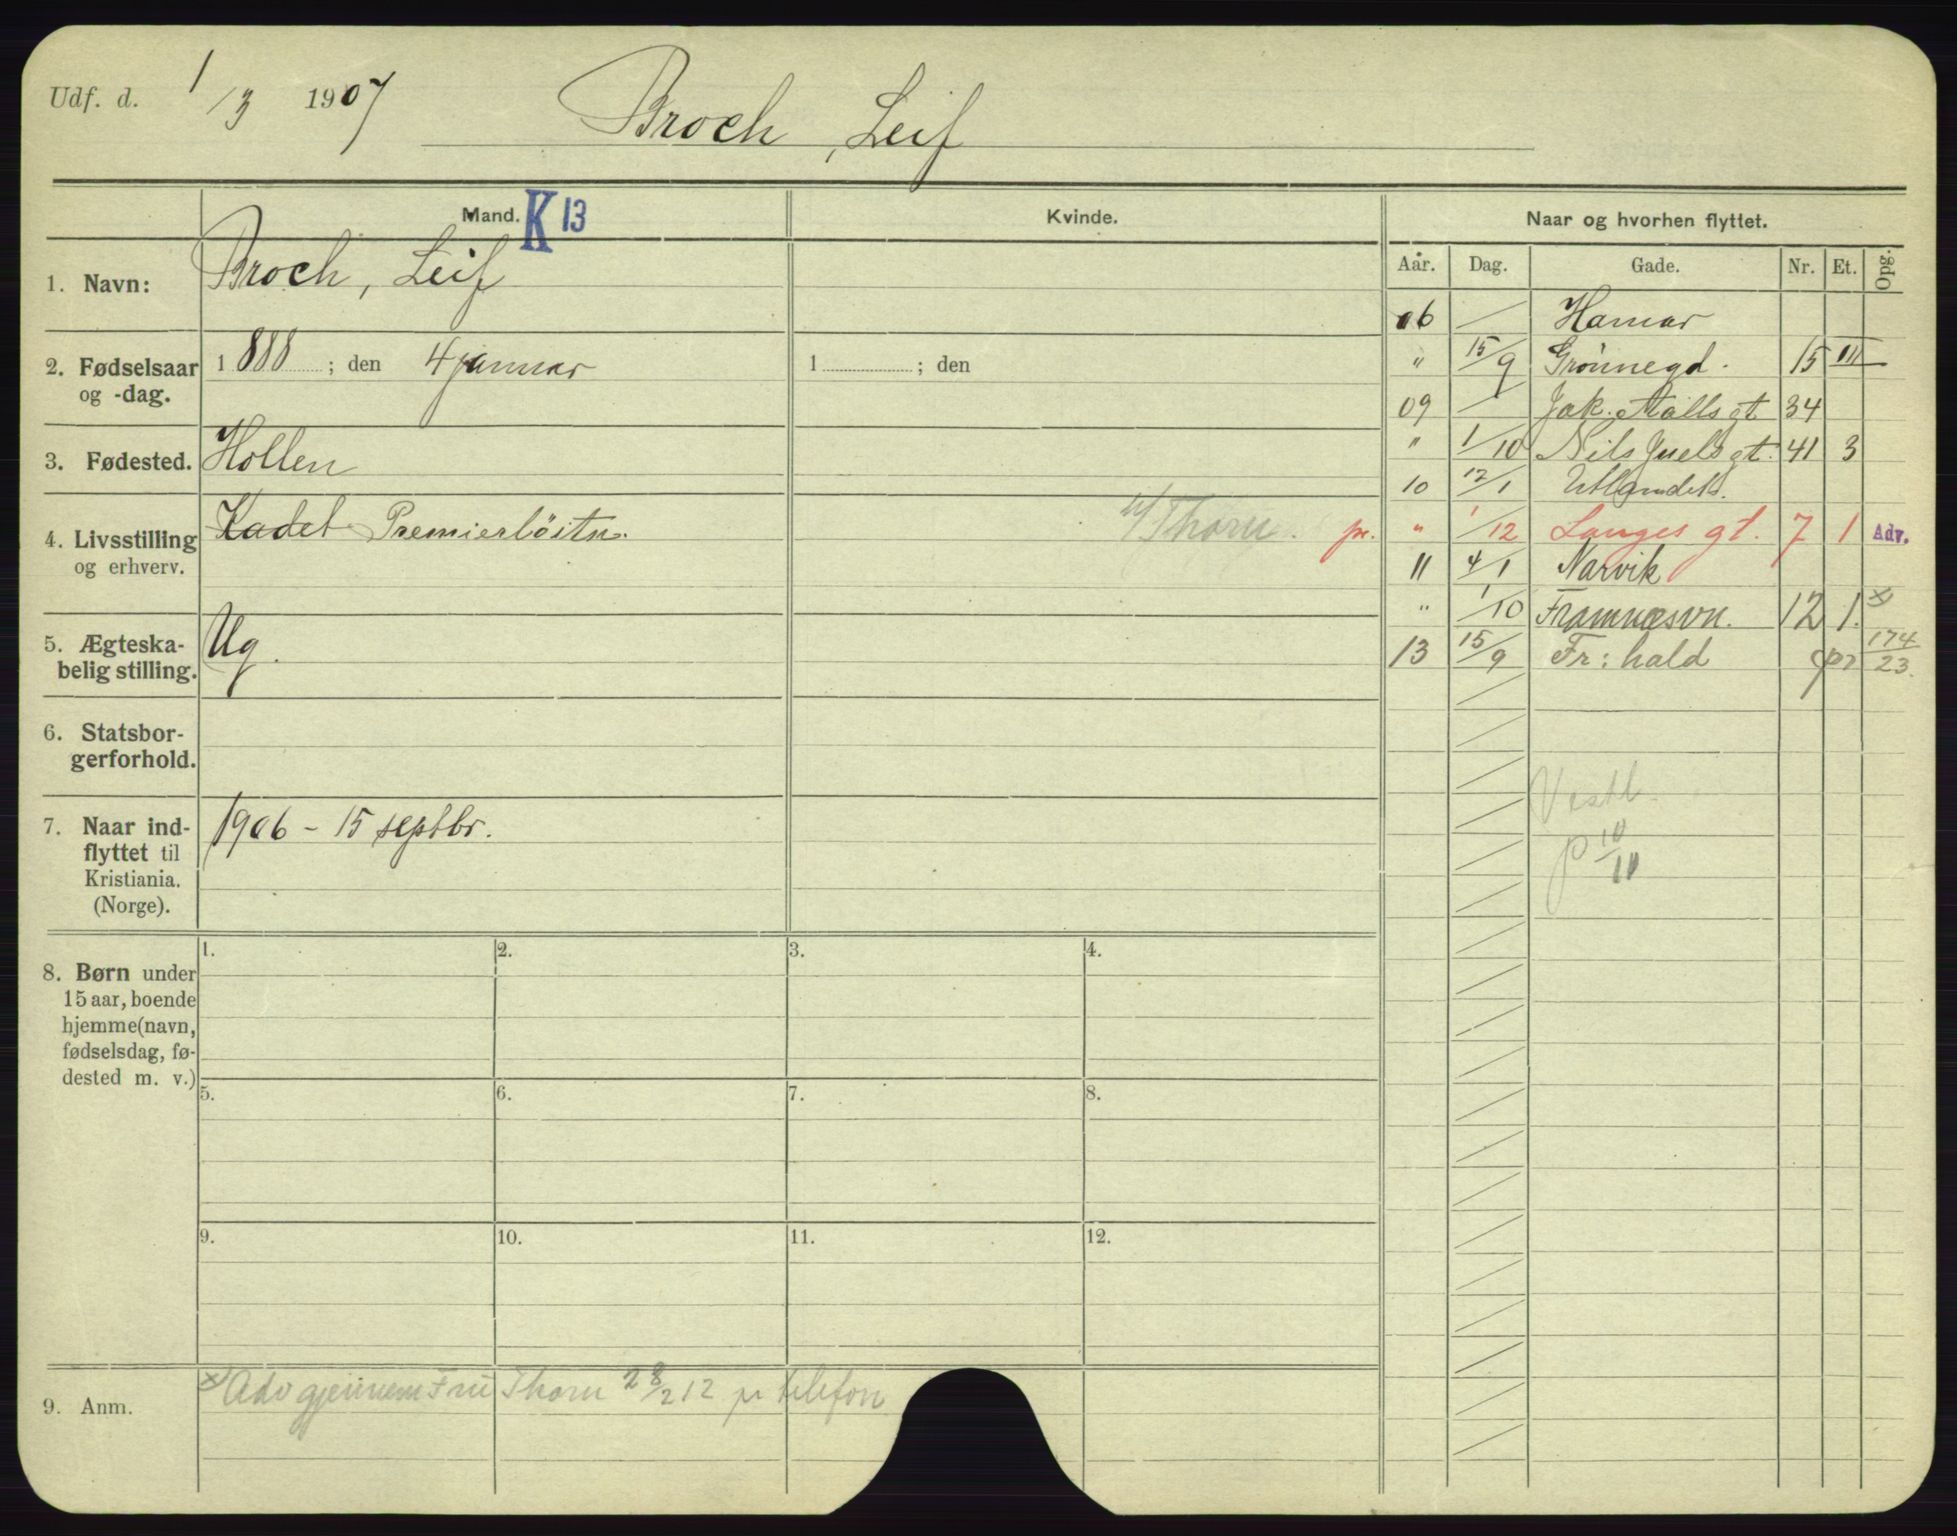 Udf. d. 1/3 1907 Broch, Leif
Mand. K 13 Kvinde. Naar og hvorhen flyttet.
Aar. Dag. Gade. Nr. Et. Opg.
1. Navn: Broch, Leif
2. Fødselsaar og -dag. 1888 ; den 4 januar 1 ; den
3. Fødested. Hollen
4. Livsstilling og erhverv. Kadet Premierløitn. Thorn. pr.
5. Ægteska-
belig stilling. Ug.
6. Statsbor-
gerforhold.
7. Naar ind-
flyttet til
Kristiania.
(Norge).
1906 - 15 septbr.
06 Hamar
" 15/9 Grønnegd. 15 III
09 Jak. Aallsgt 34
" 1/10 Nils Juelsgt. 41 3
10 12/1 Utlandet.
" 1/12 Langes gt. 7 1 Adv.
11 4/1 Narvik
" 1/10 Framnæsvn. 12 1. x)
13 15/9 Fr: hald pr 174/23.
Vestl.
P 10/11
8. Børn under
15 aar, boende
hjemme (navn,
fødselsdag, fø-
dested m. v.)
1. 2. 3. 4.
5. 6. 7. 8.
9. 10. 11. 12.
9. Anm. x) Adv gjennem Fru Thorn 28/2 12 pr telefon